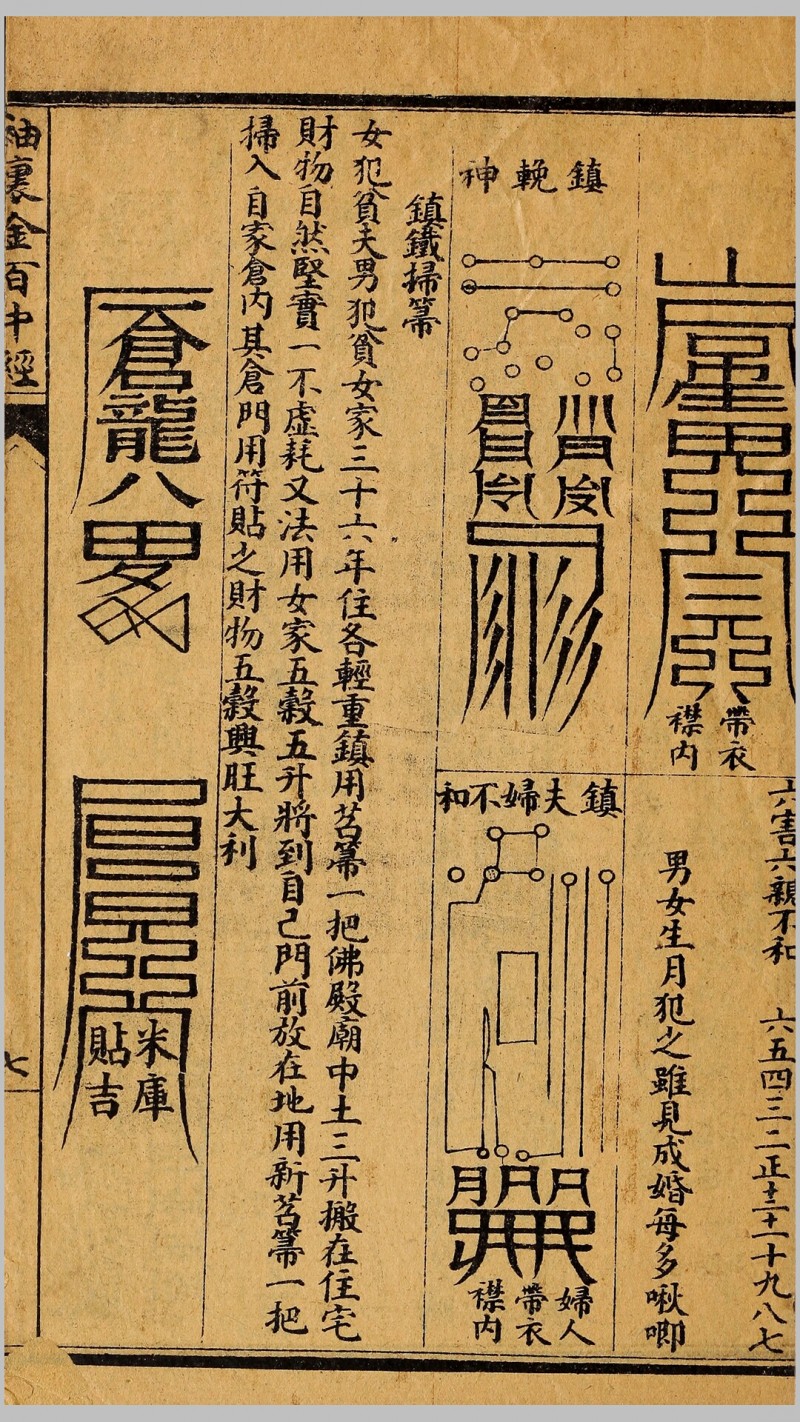 帶衣
襟内
六害六親不和 六五四三二正十二十一十九八七
男女生月犯之雖見成婚每多啾唧
鎮輓神
鎮夫婦不和
婦人
帶衣
襟内
鎮鐵掃箒
女犯貧夫男犯貧女家三十六年住各輕重鎮用苕箒一把佛殿廟中土三升搬在住宅
財物自然堅實一不虛耗又法用女家五穀五升將到自己門前放在地用新苕箒一把
掃入自家倉内其倉門用符貼之財物五穀興旺大利
倉龍八
米庫
貼吉
袖裏金百中經
七